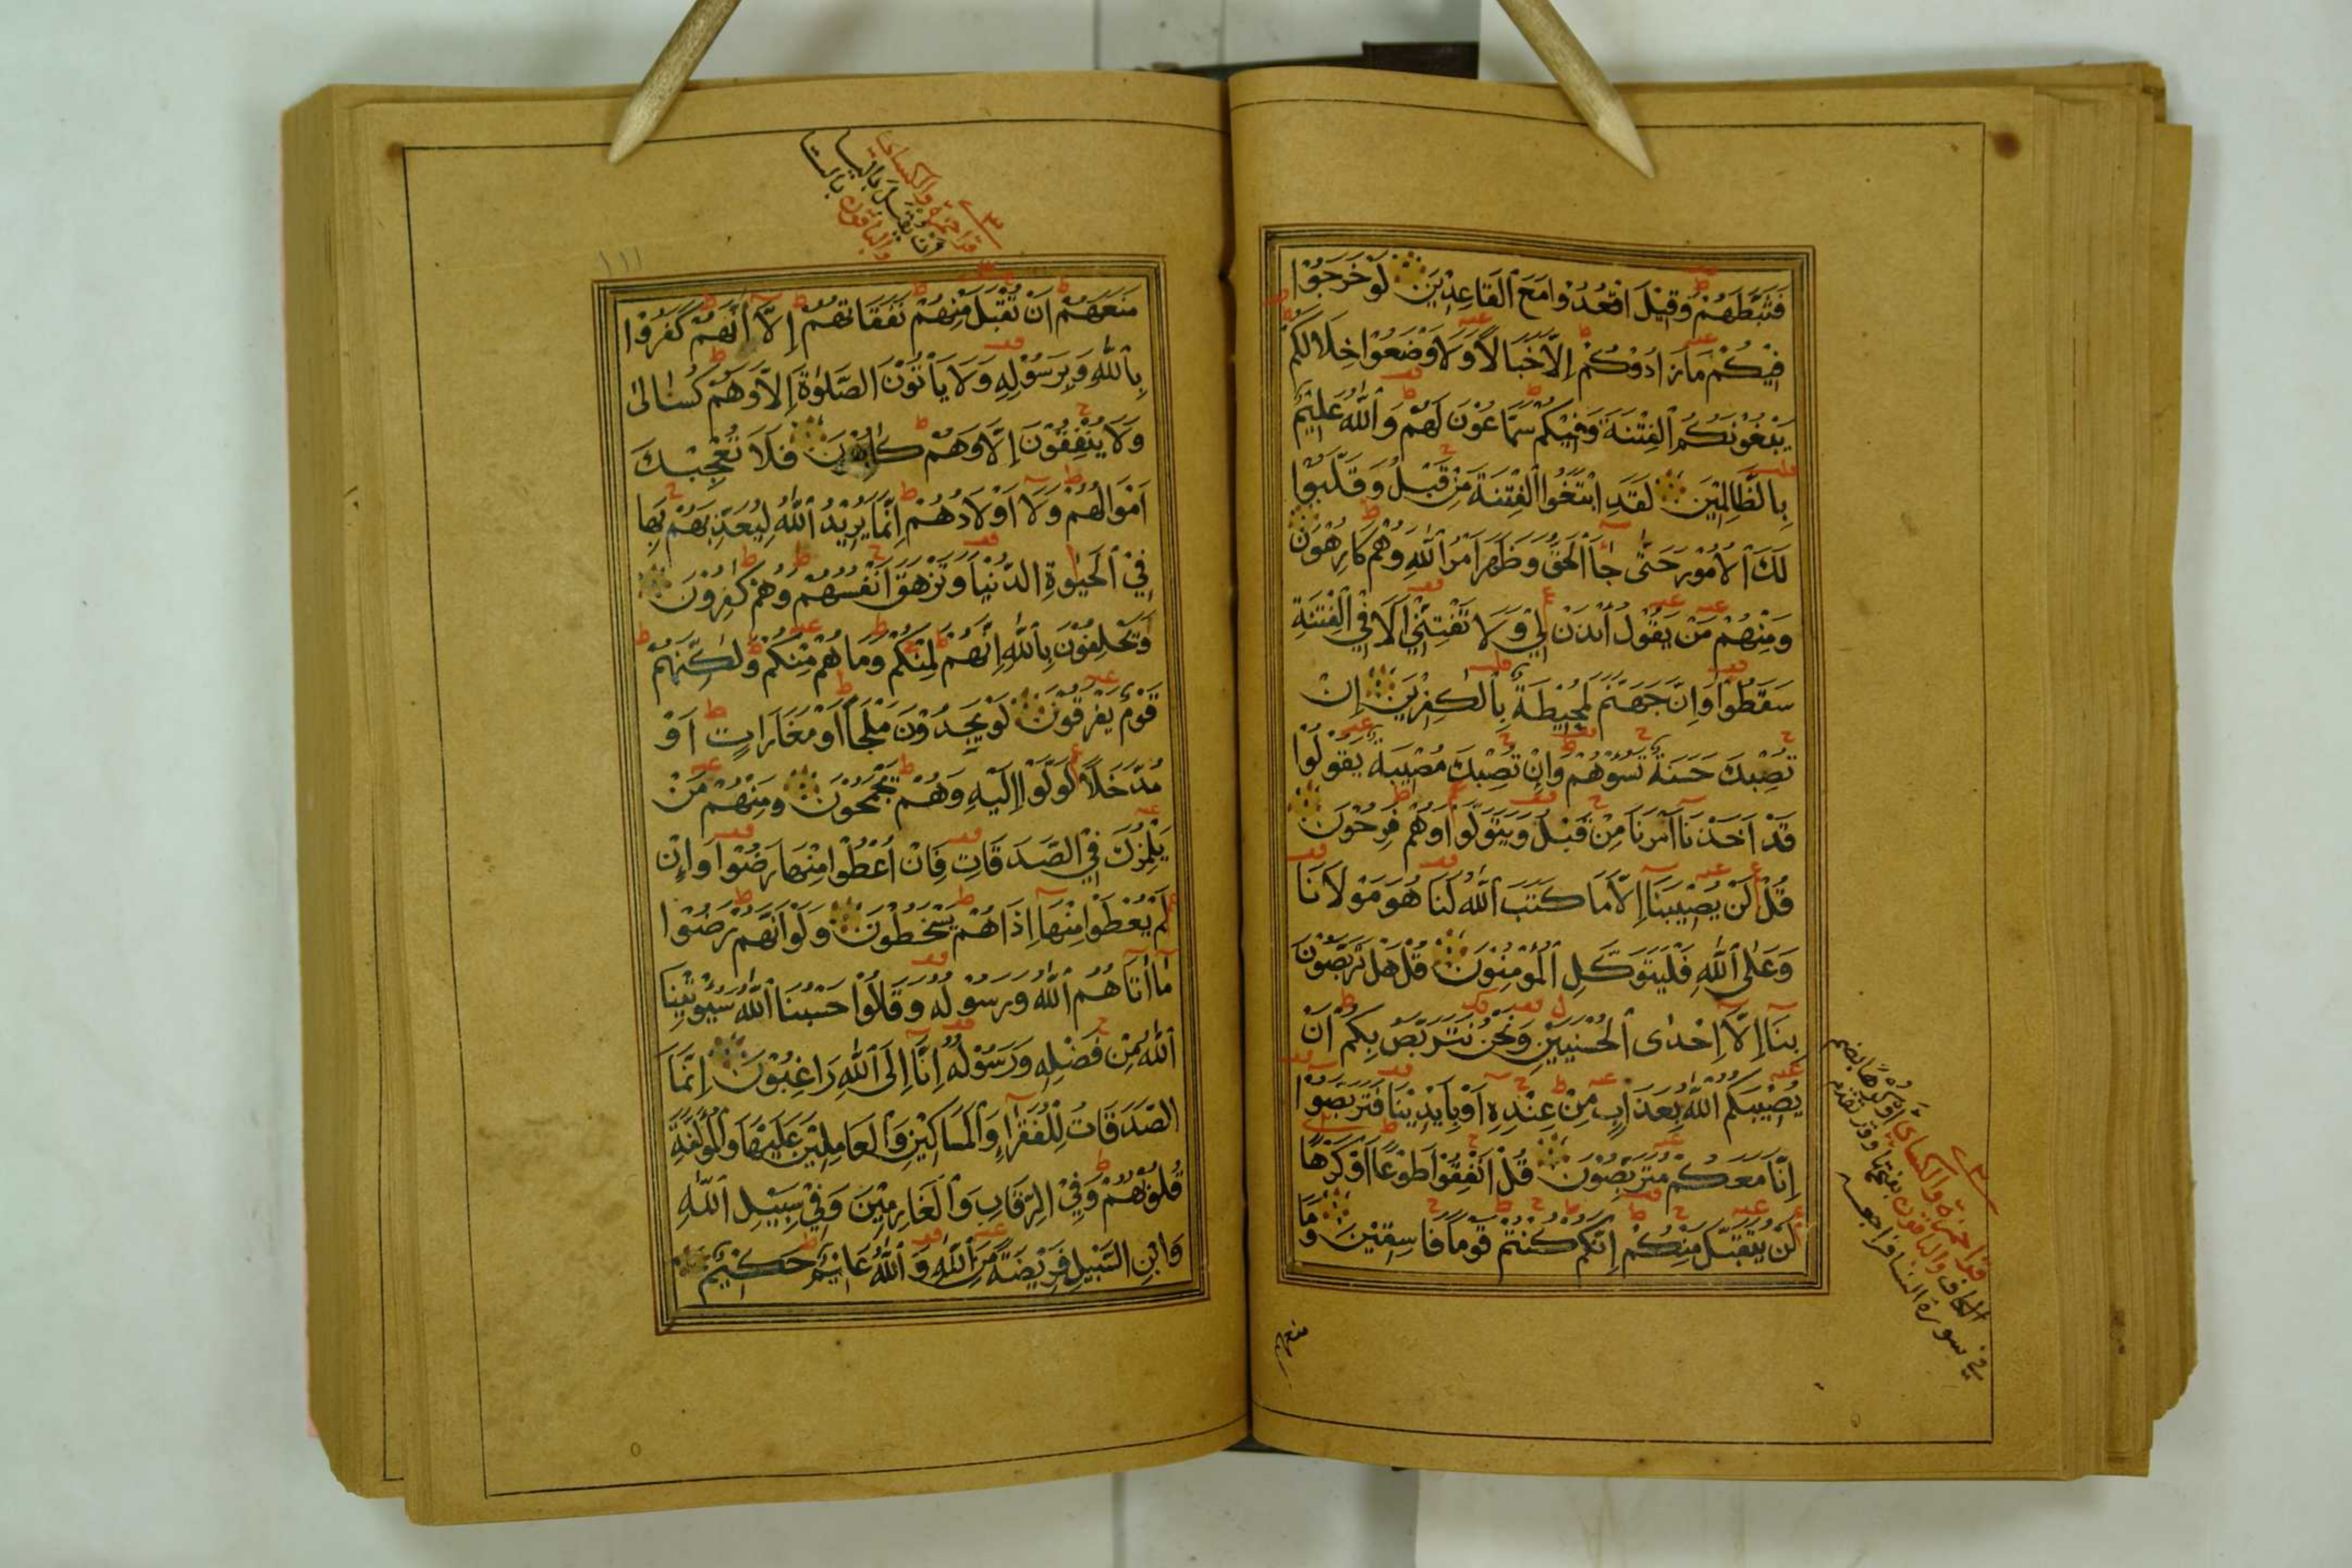 فَثَبَّطَهُمْ وَقِيْلَ اقْعُدُوْا مَعَ الْقَاعِدِيْنَ لَوْ خَرَجُوْا
فِيْكُمْ مَا زَادُوْكُمْ اِلَّا خَبَالًا وَلَا وْضَعُوْا خِلَالَكُمْ
يَبْغُوْنَكُمُ الْفِتْنَةَ وَفِيْكُمْ سَمَّاعُوْنَ لَهُمْ وَاللّٰهُ عَلِيْمٌ
بِالظَّالِمِيْنَ لَقَدِ ابْتَغَوُا الْفِتْنَةَ مِنْ قَبْلُ وَقَلَّبُوْا
لَكَ الْاُمُوْرَ حَتّٰى جَاۤءَ الْحَقُّ وَظَهَرَ اَمْرُ اللّٰهِ وَهُمْ كَارِهُوْنَ
وَمِنْهُمْ مَنْ يَقُوْلُ ائْذَنْ لِيْ وَلَا تَفْتِنِّيْ اَلَا فِي الْفِتْنَةِ
سَقَطُوْا وَاِنَّ جَهَنَّمَ لَمُحِيْطَةٌ بِالْكٰفِرِيْنَ اِنْ
تُصِبْكَ حَسَنَةٌ تَسُؤْهُمْ وَاِنْ تُصِبْكَ مُصِيْبَةٌ يَقُوْلُوْا
قَدْ اَخَذْنَا اَمْرَنَا مِنْ قَبْلُ وَيَتَوَلَّوْا وَهُمْ فَرِحُوْنَ
قُلْ لَنْ يُصِيْبَنَا اِلَّا مَا كَتَبَ اللّٰهُ لَنَا هُوَ مَوْلَانَا
وَعَلَى اللّٰهِ فَلْيَتَوَكَّلِ الْمُؤْمِنُوْنَ قُلْ هَلْ تَرَبَّصُوْنَ
بِنَا اِلَّا اِحْدَى الْحُسْنَيَيْنِ وَنَحْنُ نَتَرَبَّصُ بِكُمْ اَنْ
يُصِيْبَكُمُ اللّٰهُ بِعَذَابٍ مِنْ عِنْدِهِ اَوْ بِاَيْدِيْنَا فَتَرَبَّصُوْا
اِنَّا مَعَكُمْ مُتَرَبِّصُوْنَ قُلْ اَنْفِقُوْا طَوْعًا اَوْ كَرْهًا
لَنْ يُتَقَبَّلَ مِنْكُمْ اِنَّكُمْ كُنْتُمْ قَوْمًا فَاسِقِيْنَ وَمَا
قرأ حمزة والكسائي أو كرها بضم
الكاف والباقون بفتحها وقد تقدم
في سورة النسا فراجعه
منعهم
قرأ حمزة والكسائي
أن يقبل بالياء
والباقون بالتاء
١١١
مَنَعَهُمْ اَنْ تُقْبَلَ مِنْهُمْ نَفَقَاتُهُمْ اِلَّا اَنَّهُمْ كَفَرُوْا
بِاللّٰهِ وَبِرَسُوْلِهِ وَلَا يَأْتُوْنَ الصَّلٰوةَ اِلَّا وَهُمْ كُسَالٰى
وَلَا يُنْفِقُوْنَ اِلَّا وَهُمْ كَارِهُوْنَ فَلَا تُعْجِبْكَ
اَمْوَالُهُمْ وَلَا اَوْلَادُهُمْ اِنَّمَا يُرِيْدُ اللّٰهُ لِيُعَذِّبَهُمْ بِهَا
فِي الْحَيٰوةِ الدُّنْيَا وَتَزْهَقَ اَنْفُسُهُمْ وَهُمْ كٰفِرُوْنَ
وَيَحْلِفُوْنَ بِاللّٰهِ اِنَّهُمْ لَمِنْكُمْ وَمَا هُمْ مِنْكُمْ وَلٰكِنَّهُمْ
قَوْمٌ يَفْرَقُوْنَ لَوْ يَجِدُوْنَ مَلْجَاً اَوْ مَغَارَاتٍ اَوْ
مُدَّخَلًا لَوَلَّوْا اِلَيْهِ وَهُمْ يَجْمَحُوْنَ وَمِنْهُمْ مَنْ
يَلْمِزُكَ فِي الصَّدَقَاتِ فَاِنْ اُعْطُوْا مِنْهَا رَضُوْا وَاِنْ
لَمْ يُعْطَوْا مِنْهَا اِذَا هُمْ يَسْخَطُوْنَ وَلَوْ اَنَّهُمْ رَضُوْا
مَا اٰتَاهُمُ اللّٰهُ وَرَسُوْلُهُ وَقَالُوْا حَسْبُنَا اللّٰهُ سَيُؤْتِيْنَا
اللّٰهُ مِنْ فَضْلِهِ وَرَسُوْلُهُ اِنَّا اِلَى اللّٰهِ رَاغِبُوْنَ اِنَّمَا
الصَّدَقَاتُ لِلْفُقَرَاۤءِ وَالْمَسَاكِيْنِ وَالْعَامِلِيْنَ عَلَيْهَا وَالْمُؤَلَّفَةِ
قُلُوْبُهُمْ وَفِي الرِّقَابِ وَالْغَارِمِيْنَ وَفِيْ سَبِيْلِ اللّٰهِ
وَابْنِ السَّبِيْلِ فَرِيْضَةً مِنَ اللّٰهِ وَاللّٰهُ عَلِيْمٌ حَكِيْمٌ